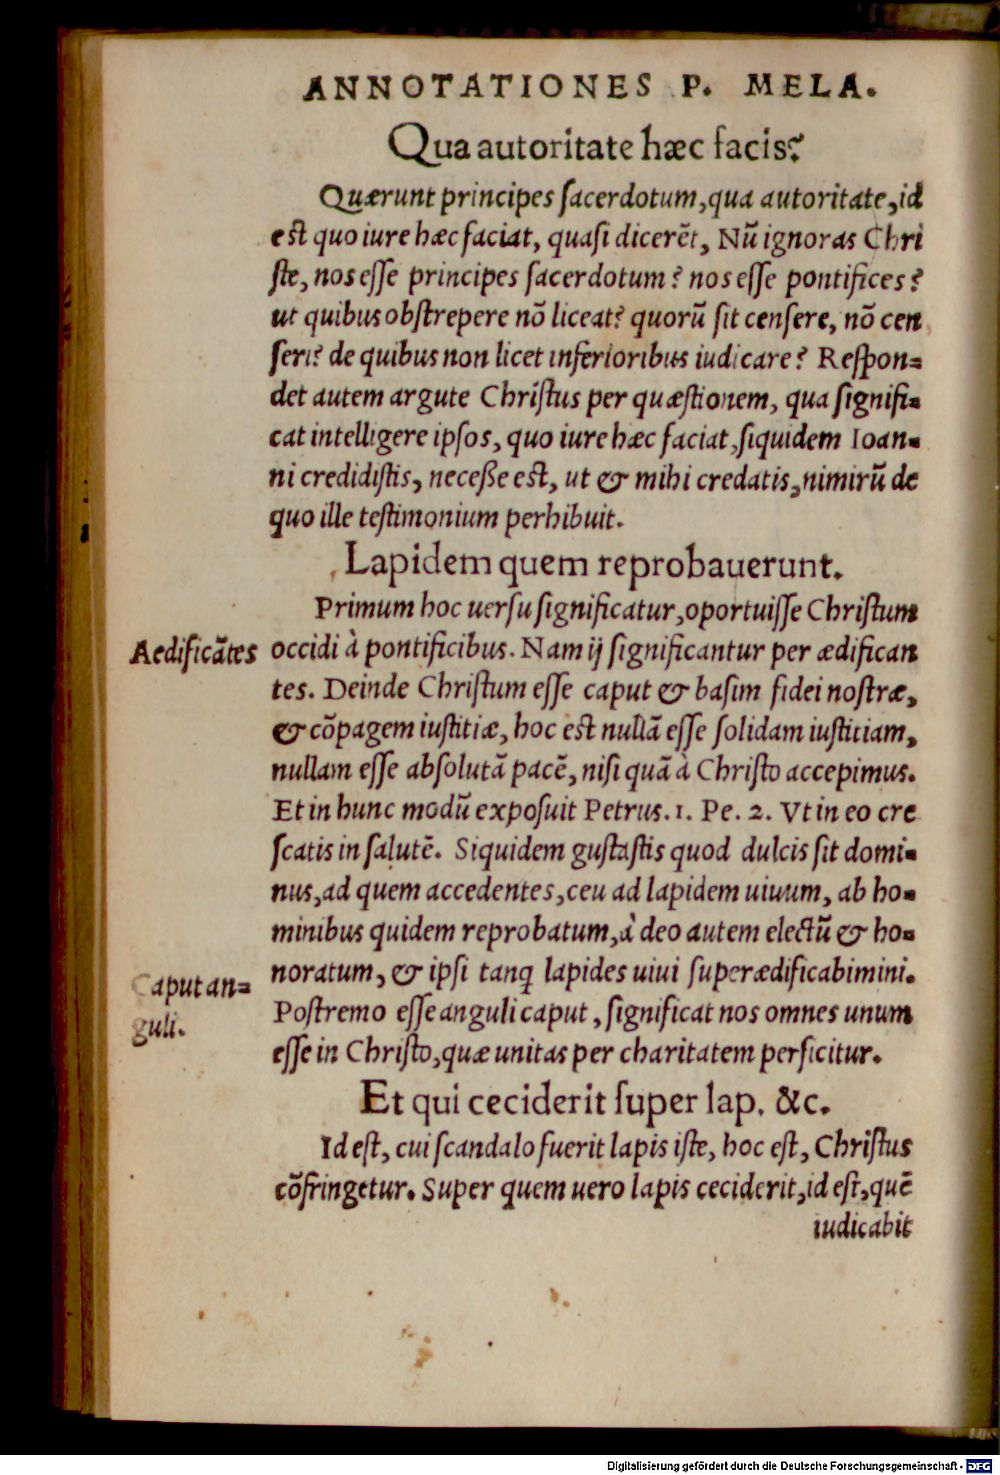 ANNOTATIONES P. MELA.
Qua autoritate hæc facis?
Quærunt principes ſacerdotum, qua autoritate, id
eſt quo iure hæc faciat, quaſi dicerēt, Nū ignoras Chri
ſte, nos eſſe principes ſacerdotum? nos eſſe pontifices?
ut quibus obſtrepere nō liceat? quorū ſit cenſere, nō cen
ſeri? de quibus non licet inferioribus iudicare? Reſpon-
det autem argute Chriſtus per quæſtionem, qua ſignifi-
cat intelligere ipſos, quo iure hæc faciat, ſiquidem Ioan-
ni credidiſtis, neceße eſt, ut & mihi credatis, nimirū de
quo ille teſtimonium perhibuit.
Lapidem quem reprobauerunt.
Primum hoc uerſu ſignificatur, oportuiſſe Chriſtum
Aedificātes
occidi à pontificibus. Nam ij ſignificantur per ædifican
tes. Deinde Chriſtum eſſe caput & baſim fidei noſtræ,
& cōpagem iuſtitiæ, hoc eſt nullā eſſe ſolidam iuſtitiam,
nullam eſſe abſolutā pacē, niſi quā à Chriſto accepimus.
Et in hunc modū expoſuit Petrus. 1. Pe. 2. Vt in eo cre
ſcatis in ſalutē. Siquidem guſtaſtis quod dulcis ſit domi-
nus, ad quem accedentes, ceu ad lapidem uiuum, ab ho-
minibus quidem reprobatum, à deo autem electū & ho-
noratum, & ipſi tanq̨ lapides uiui ſuperædificabimini.
Caput an-
guli.
Poſtremo eſſe anguli caput, ſignificat nos omnes unum
eſſe in Chriſto, quæ unitas per charitatem perficitur.
Et qui ceciderit ſuper lap. &c.
Id eſt, cui ſcandalo fuerit lapis iſte, hoc eſt, Chriſtus
cōfringetur. Super quem uero lapis ceciderit, id eſt, quē
iudicabit
Digitalisierung gefördert durch die Deutsche Forschungsgemeinschaft - DFG